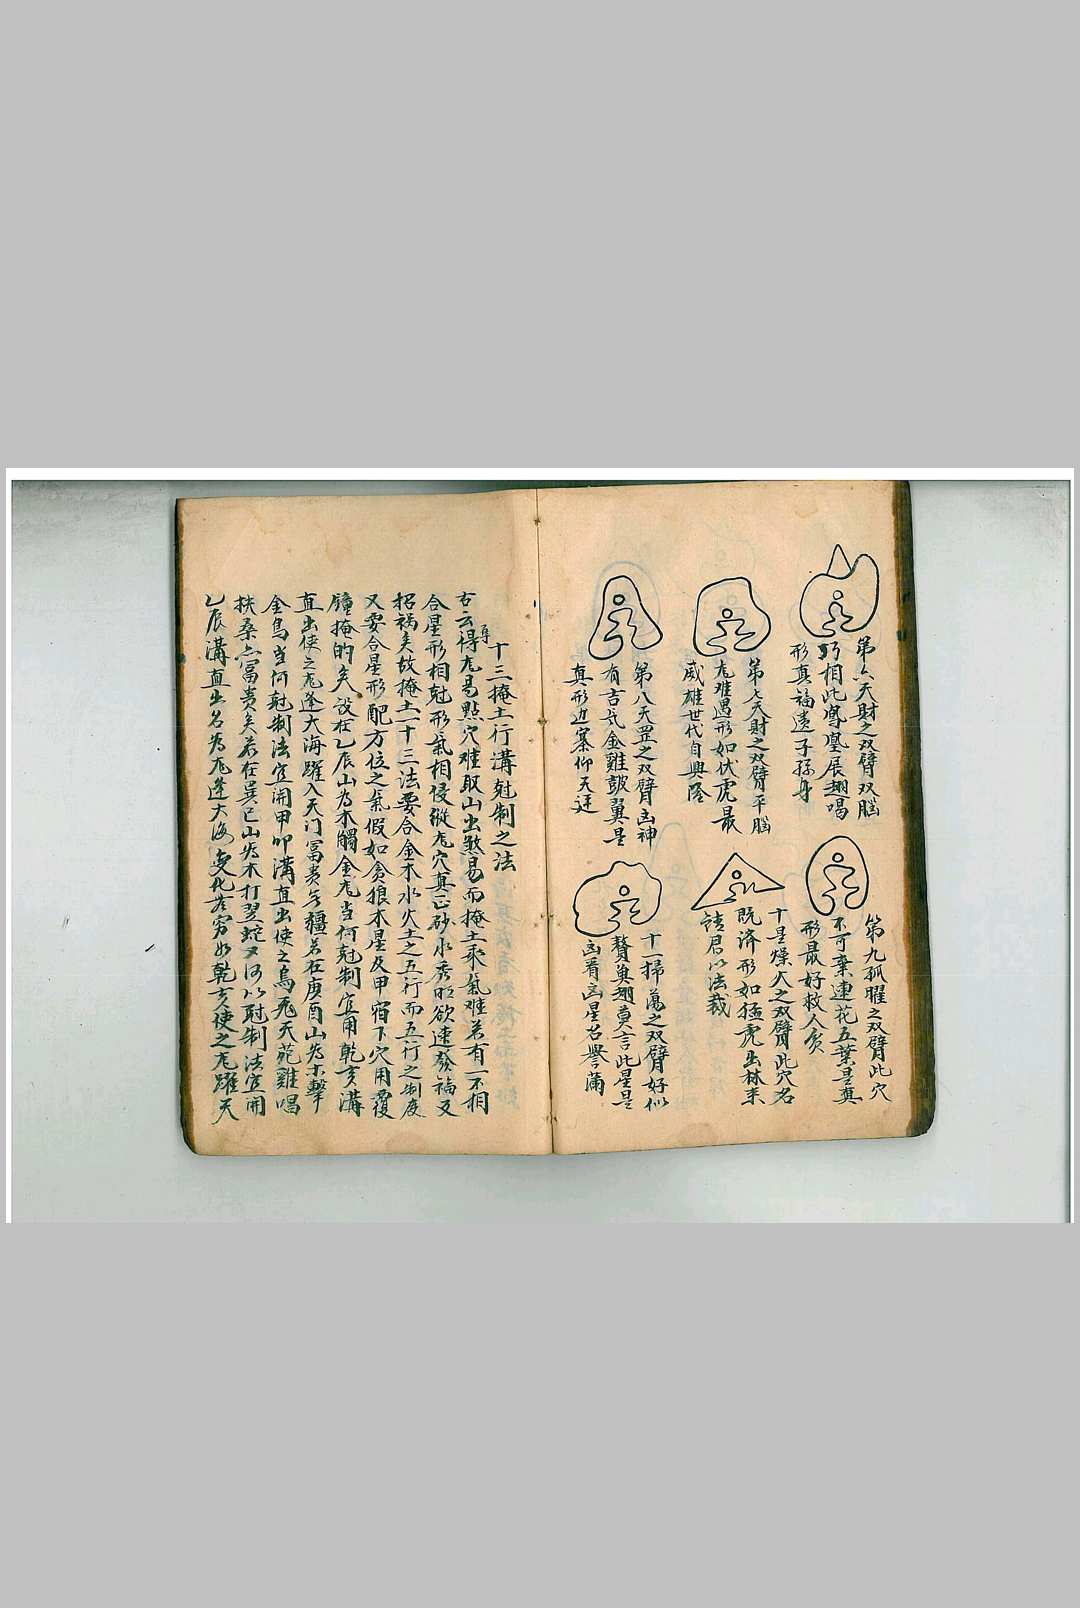 第六天財之双臂双腦
巧相此鳳凰展翅唱
形真福遺子孫身
第七天財之双臂平腦
龙难遇形如伏虎最
威雄世代自興隆
第八天罡之双臂凶神
有吉氏金雞皷翼是
真形边寨仰天廷
第九孤曜之双臂此穴
不可棄連花五葉是真
形最好救人貧
十星燥火之双臂此穴名
既濟形如猛虎出林来
請君以法裁
十一掃蕩之双臂好似
贅奠翅莫言此星是
凶看凶星名譽蕳
十三掩土行溝尅制之法
古云得龙易點穴难取山出煞易而掩土乘氣难若有一不相
合星形相尅形氣相侵縱龙穴真正砂水秀旺欲速發福又
招禍矣故掩土一十三法要合金木水火土之五行而五行之制度
又要合星形配方位之氣假如貪狼木星及甲宿下穴用覆
鐘掩的矣設在乙辰山为木觸金龙当何尅制宜用乾亥溝
直出使之龙逢大海躍入天门富贵无疆若在庚酉山为木擊
金鳥当何尅制法宜開甲卯溝直出使之鳥飛天苑雞唱
扶桑亦富贵矣若在巽巳山为木打翌蛇又何以尅制法宜開
乙辰溝直出名为龙逢大海变化无穷如乾亥使之龙躍天